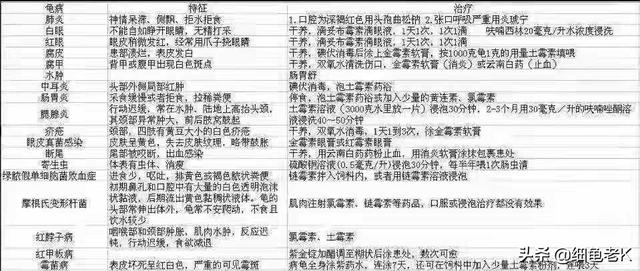 龟病 特征 治疗
肺炎 神情呆滞、侧飘、拒水拒食 1.口腔为深褐红色用头孢曲松钠2.张口呼吸严重用炎琥宁
白眼 不能自如睁开眼睛、无精打采 干养，滴芙布霉素滴眼液，1天1次，1次1滴 呋喃西林20毫克/升水浓度浸洗
红眼 眼皮稍微发红，经常用爪子挠眼睛 干养，滴芙布霉素滴眼液，1天1次，1次1滴
腐皮 患处溃烂，表皮发白 干养，碘伏消毒，按1000克龟1克的用量土霉素填喂
腐甲 背甲或腹甲出现白色斑点 干养，双氧水清洗伤口，金霉素软膏（消炎）或云南白药（止血）
水肿 肠胃舒
中耳炎 头部外侧局部红肿 碘伏消毒，泡土霉素药浴
肠胃炎 采食缓慢或者拒食，拉稀粪便 停食，泡土霉素药浴或加入少量的黄连素、氯霉素
腮腺炎 行动迟缓，常在水中、陆地上高抬头颈，
其颈部异常肿大，前后肢窝鼓起 土霉素溶液（3000克水里放一片）浸泡30分钟，2-3个月用30毫克/升的呋喃唑酮溶液浸浇40~50分钟
疥疮 颈部，四肢有黄豆大小的白色疥疮 干养，双氧水消毒，1天1到3次，涂金霉素软膏
眼皮真菌感染 皮肤呈黄色，失去皮肤纹理，略带鼓胀 金霉素眼膏或红霉素眼膏
断尾 尾部被咬断，出血感染 干养，用云南白药药粉止血，用消炎软膏涂抹包裹患处
寄生虫 体表有虫体、消瘦 硫酸铜溶液(0.5毫克/升)浸泡30分钟，每半年喂1次肠虫清
绿脓假单细胞菌败血症 进食少，呕吐，排黄色或褐色脓状粪便 链霉素拌入饲料内，或者用链霉素溶液浸泡
摩根氏变形杆菌 初期鼻孔和口腔中有大量的白色透明泡沫状黏液，后期流出黄色黏稠状液体。龟的头部常伸出体外，龟常不安爬动，不食且饮水较少 肌肉注射氯霉素、链霉素等药品，口服或浸泡治疗都没有效果
红脖子病 咽喉部和颈部肿胀，肌肉水肿，反应迟钝，行动迟缓，食欲减退 氯霉素、土霉素
红甲板病 紫金锭加醋调至糊状后涂患处，数次可愈
霉菌病 表皮坏死呈红白色，严重的可见霉斑 病龟全身涂紫药水，连涂7天，还可在饲料中加入少量维生素
头条 @细龟老K